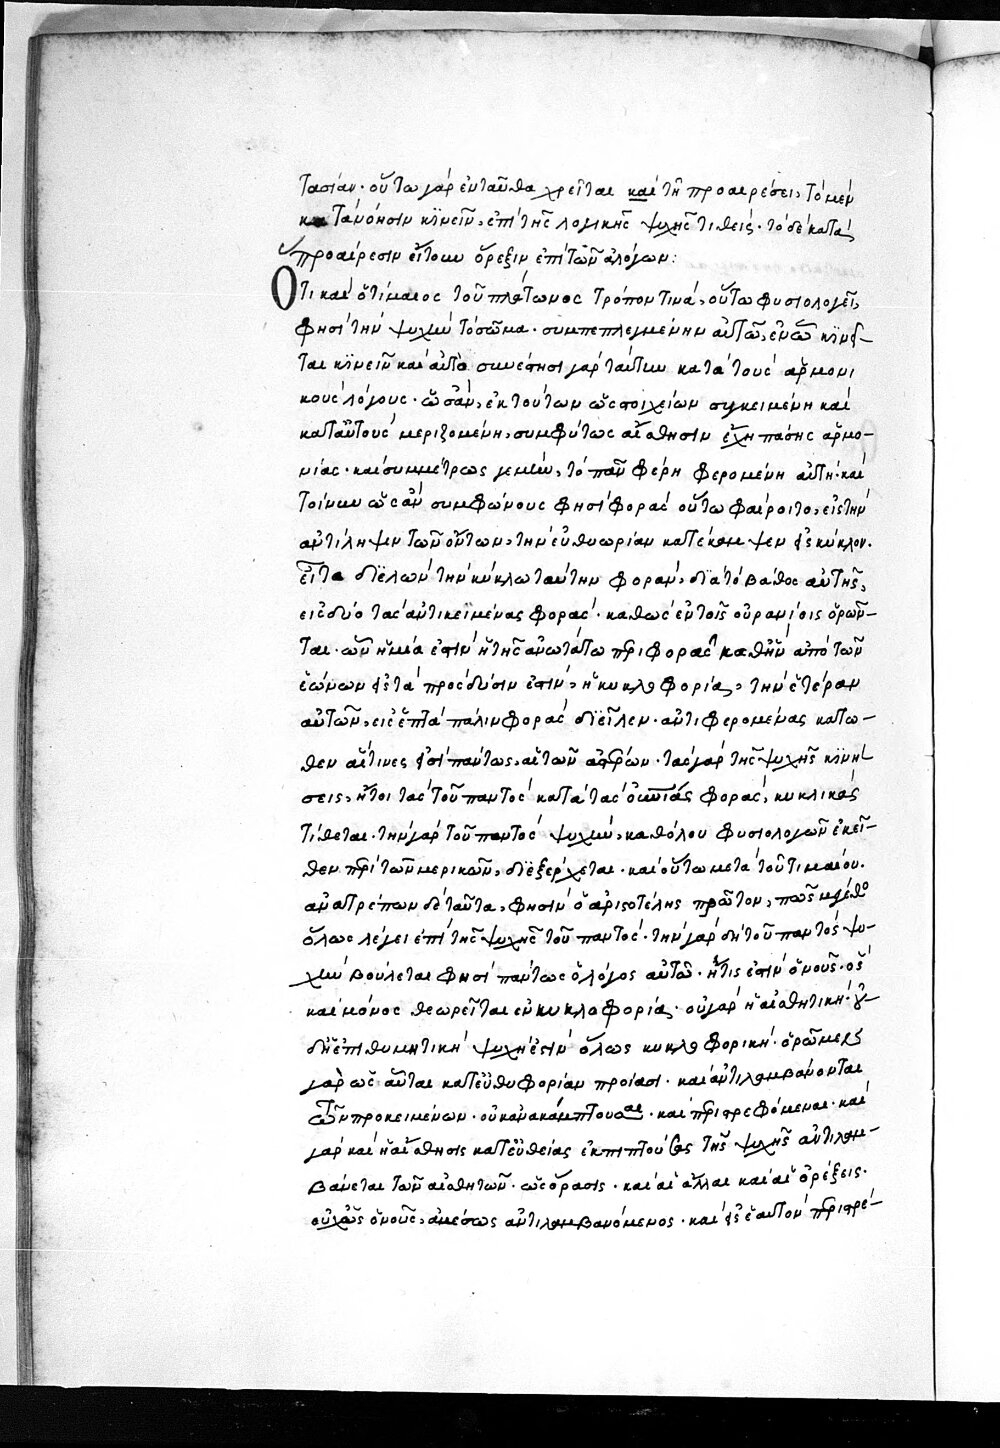 τασίαν· οὕτω γὰρ ἐνταῦθα χρεῖται καὶ τῇ προαιρέσει, τὸ μὲν
κατὰ νόησιν κϊνεῖν, ἐπὶ τῆς λογικῆς ψυχῆς τιθείς· τὸ δὲ κατὰ
προαίρεσιν εἴτουν ὄρεξιν ἐπὶ τῶν ἀλόγων:
Ὅτι καὶ ὁ τίμαιος τοῦ πλάτωνος τρόπον τινὰ, οὕτω φυσιολογεῖ,
φησὶ τὴν ψυχὴν τὸ σῶμα· συμπεπλεγμένην αὐτῶ, ἐν ὧ κϊνεῖ-
ται κϊνεῖν καὶ αὐτὸ συνέστησι γὰρ ταύτην κατὰ τοὺς ἁρμονι
κοὺς λόγους· ὡσὰν, ἐκ τούτων ὡς στοιχείων συγκειμένη καὶ
κατ' αὐτοὺς μεριζομένη, συμφύτως αἴσθησιν ἔχη πάσης ἁρμο-
νίας· καὶ συμμέτρως γεμὴν, τὸ πᾶν φέρη φερομένη αὐτή· καὶ
τοίνυν ὡς ἂν συμφώνους φησὶ φορὰς οὕτω φαίροιτο, εἰς τὴν
ἀντίληψιν τῶν ὄντων, τὴν εὐθυωρίαν κατέκαμψεν εἰς κύκλον.
εἶτα διελὼν τὴν κύκλω ταύτην φορὰν, διὰ τὸ βάθος αὐτῆς,
εἰς δύο τὰς ἀντικειμένας φορὰς· καθὼς ἐν τοῖς οὐρανίοις ὁρῶν-
ται· ὧν ἡ μία ἐστὶν ἡ τῆς ἀνωτάτω περιφορᾶς καθ' ἣν ἀπὸ τῶν
ἑώων εἰς τὰ πρὸς δύσιν ἐστὶν, ἡ κυκλοφορία, τὴν ἑτέραν
αὐτῶν, εἰς ἑπτὰ πάλιν φορὰς διεῖλεν· ἀντιφερομένας κάτω-
θεν αἵτινες εἰσὶ πάντως, αἱ τῶν ἀστέρων· τὰς γὰρ τῆς ψυχῆς κϊνή-
σεις, ἤτοι τὰς τοῦ παντὸς κατὰ τὰς οὐρανίας φορὰς, κυκλικὰς
τίθεται· τὴν γὰρ τοῦ παντὸς ψυχὴν, καθόλου φυσιολογῶν ἐκεῖ-
θεν περὶ τῶν μερικῶν, διεξέρχεται· καὶ οὕτω μετὰ τοῦ τιμαίου.
ἀνατρέπων δὲ ταῦτα, φησὶν ὁ ἀριστοτέλης πρῶτον, πῶς μέγεθο
ὅλως λέγει ἐπὶ τῆς ψυχῆς τοῦ παντός· τὴν γὰρ δὴ τοῦ παντὸς ψυ-
χὴν βούλεται φησὶ πάντως ὁ λόγος αὐτῶ· ἥτις ἐστὶν ὁ νοῦς· ὃς
καὶ μόνος θεωρεῖται ἐν κυκλοφορία· οὐ γὰρ ἡ αἰσθητική· οὐ-
δὴ ἐπιθυμητικὴ ψυχὴ ἐστὶν ὅλως κυκλοφορική· ὁρῶμεν
γὰρ ὡς αὗται κατ' εὐθυφορίαν προίασι· καὶ ἀντιλαμβάνονται
τῶν προκειμένων· οὐκ ἀνακάμπτουσαι· καὶ περιστρεφόμεναι· καὶ
γὰρ καὶ ἡ αἴσθησις κατ' εὐθείας ἐκπιπτούσης τῆς ψυχῆς ἀντιλαμ-
βάνεται τῶν αἰσθητῶν· ὡς ὅρασις· καὶ αἱ ἄλλαι καὶ αἱ ὀρέξεις·
οὐχ ὡς ὁ νοῦς, ἀμέσως ἀντιλαμβανόμενος· καὶ εἰς ἑαυτὸν περιστρέ-